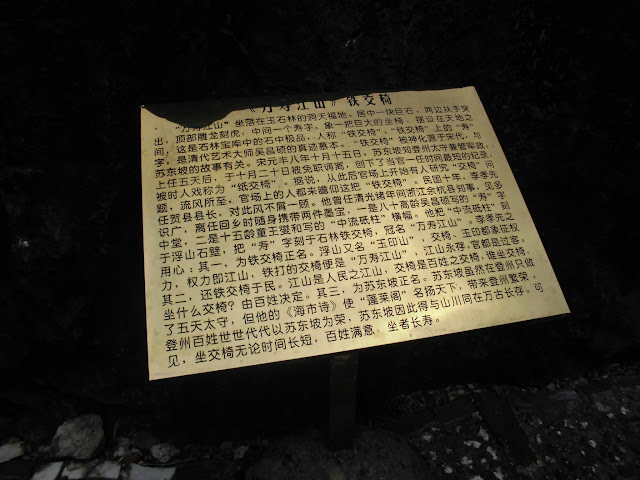 《万寿江山》铁交椅
“万寿江山”坐落在玉石林的洞天福地。居中一块巨石，两边扶手突
出，顶部雕龙刻虎，中间一个寿字，象一把巨大的坐椅，摆设在天地之
间，这是石林宝库中的石中极品，人称“铁交椅”。“铁交椅”上的“寿”
字，是清代艺术大师吴昌硕的真迹摹本。“铁交椅”将神化源于宋代，与
苏东坡的故事有关。宋元丰八年十月十五日，苏东坡知登州太守兼管军政，
上任五天后，于十月二十日被免职调离，创下了当官一任时间最短的纪录，
被时人戏称为“纸交椅”。据说，从此后官场上开始有人研究“交椅”问
题，流风所至，官场上的人都来瞻仰这把“铁交椅”。民国十年，李孝先
任贺县县长，对此风不屑一顾。他曾任清光绪年间浙江余杭县知事，见多
识广，离任回乡时随身携带两件墨宝，一是八十高龄吴昌硕写的“寿”字
中堂，二是十五龄童王燮和写的“中流砥柱”横幅。他把“中流砥柱”刻
于浮山石壁，把“寿”字刻于石林铁交椅，冠名“万寿江山”。李孝先之
用心：其一，为铁交椅正名。浮山又名“玉印山”，交椅、玉印都象征权
力，权力即江山，铁打的交椅便是“万寿江山”，江山永存，官都是过客。
其二，还铁交椅于民。江山是人民之江山，交椅是百姓之交椅，谁坐交椅，
坐什么交椅？由百姓决定。其三，为苏东坡正名。苏东坡虽然在登州只做
了五天太守，但他的《海市诗》使“蓬莱阁”名扬天下，带来登州繁荣，
登州百姓世世代代以苏东坡为荣，苏东坡因此得与山川同在万古长存。可
见，坐交椅无论时间长短，百姓满意，坐者长寿。